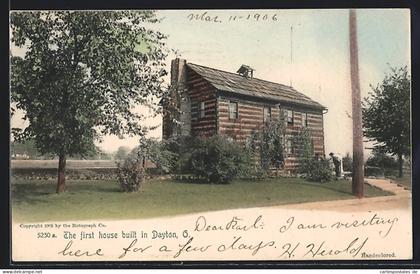 Mar. 11-1906
Copyright 1905 by the Rotograph Co.
5230 a. The first house built in Dayton, O.
Dear Karl. I am visiting
here for a few days. H. Herold
Handcolored.